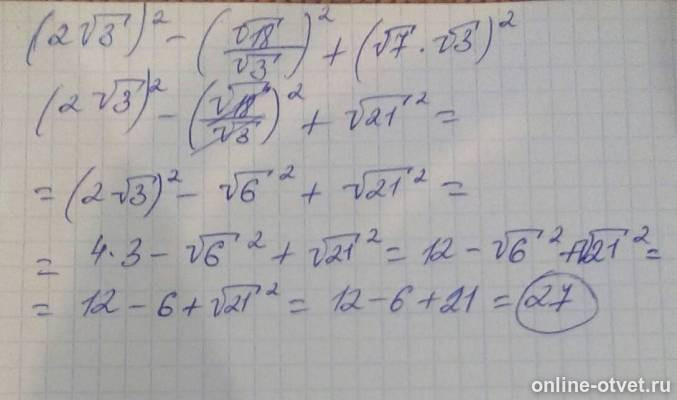 (2√3)² − (√18/√3)² + (√7 · √3)²
(2√3)² − (√18/√3)² + √21² =
= (2√3)² − √6² + √21² =
= 4·3 − √6² + √21² = 12 − √6² + √21² =
= 12 − 6 + √21² = 12 − 6 + 21 = 27
online-otvet.ru